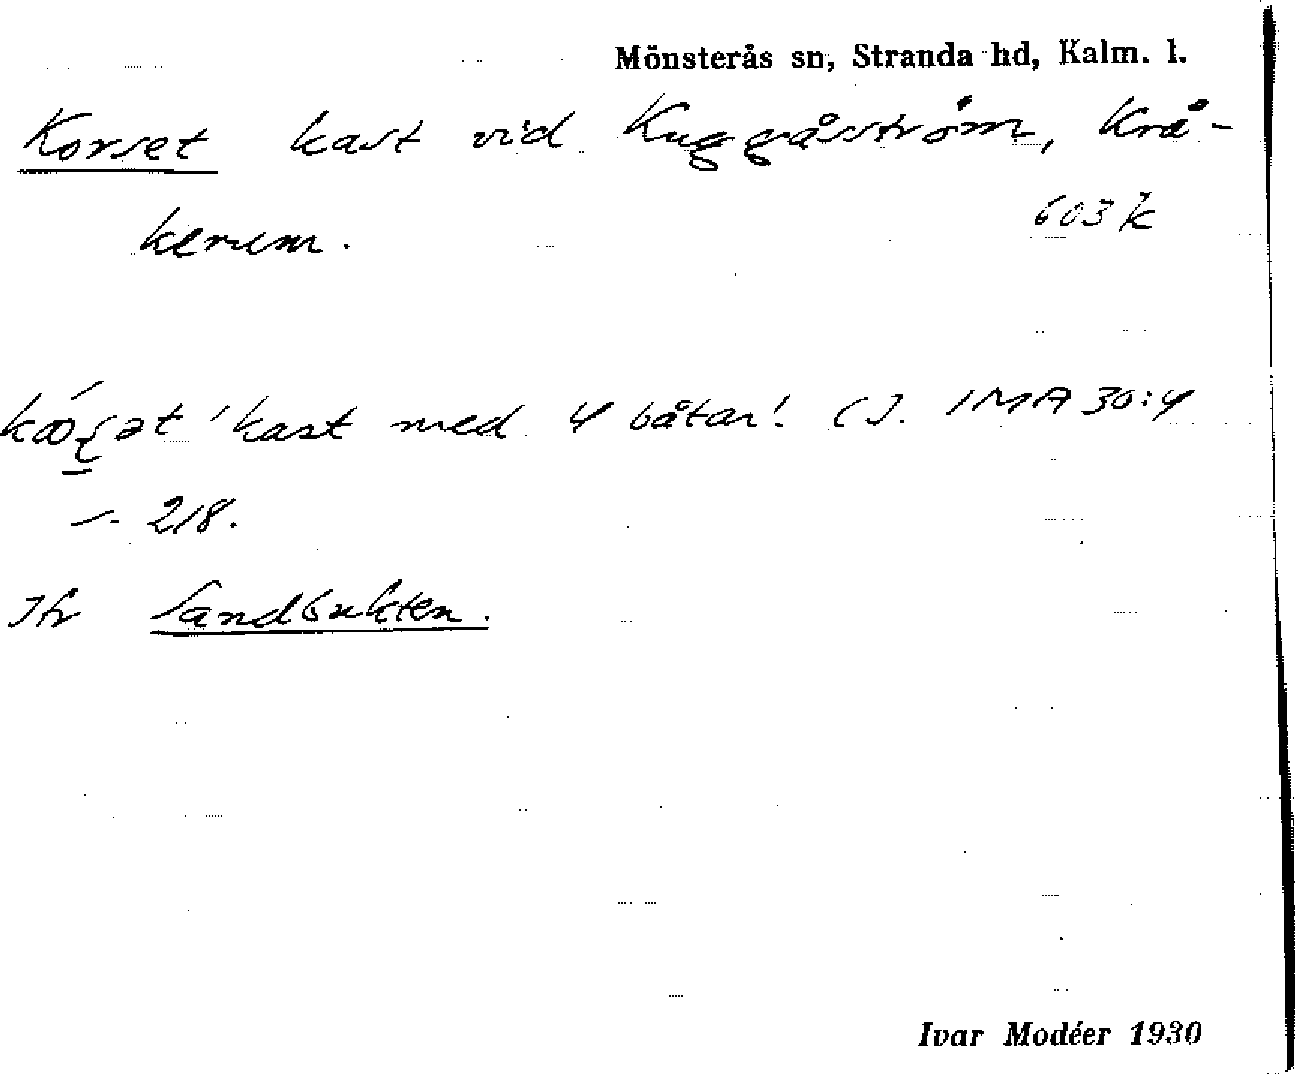 Mönsterås sn, Stranda hd, Kalm. l.
Korset kast vid Kuggåsström, Krå-
kerum.
603 k
'kast med 4 båtar'. (J. IMA 30:4
s. 218.
Jfr Sandbukten.
Ivar Modéer 1930